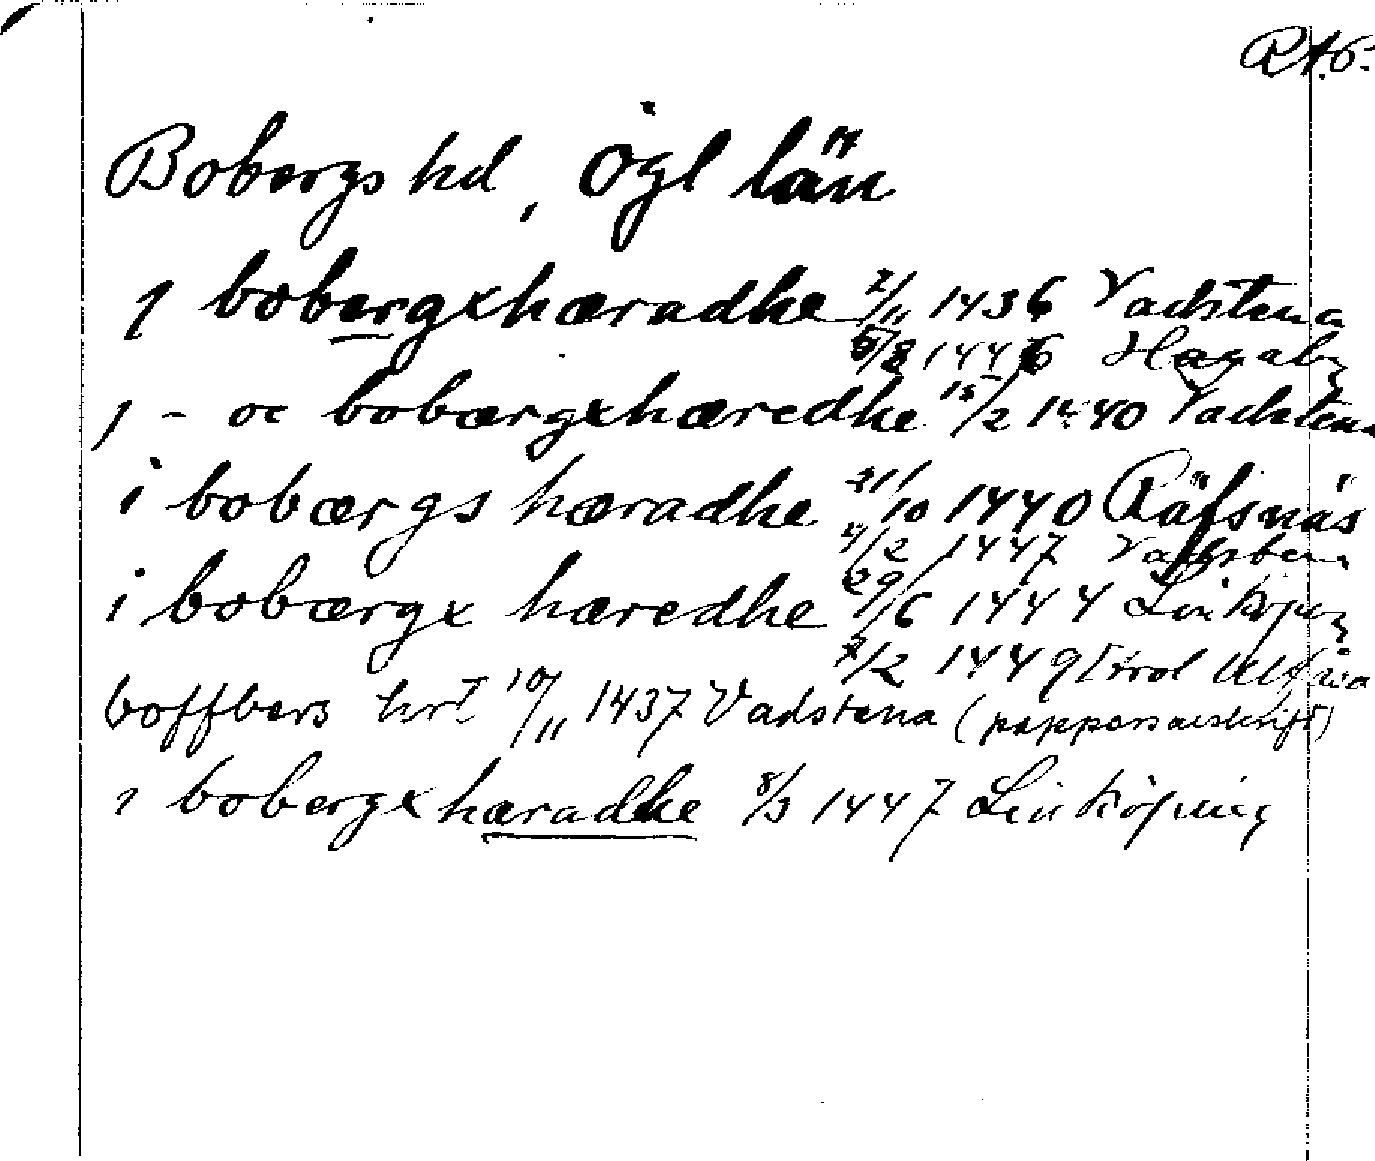 RA.ö.
Bobergs hd, Ögl län
j bobergxhæradhe 2/11 1436 Vadstena
5/8 1446 Hagaby
j - oc bobærgxhæredhe 15/2 1440 Vadstena
i bobærgs hæradhe 21/10 1440 Räfsnäs
4/2 1447 Vadstena
i bobærgx hæredhe 29/6 1444 Linköping
2/2 1449
boffbers hrt 10/11 1437 Vadstena (pappersavskrift)
i bobergxhæradhe 8/3 1447 Linköping